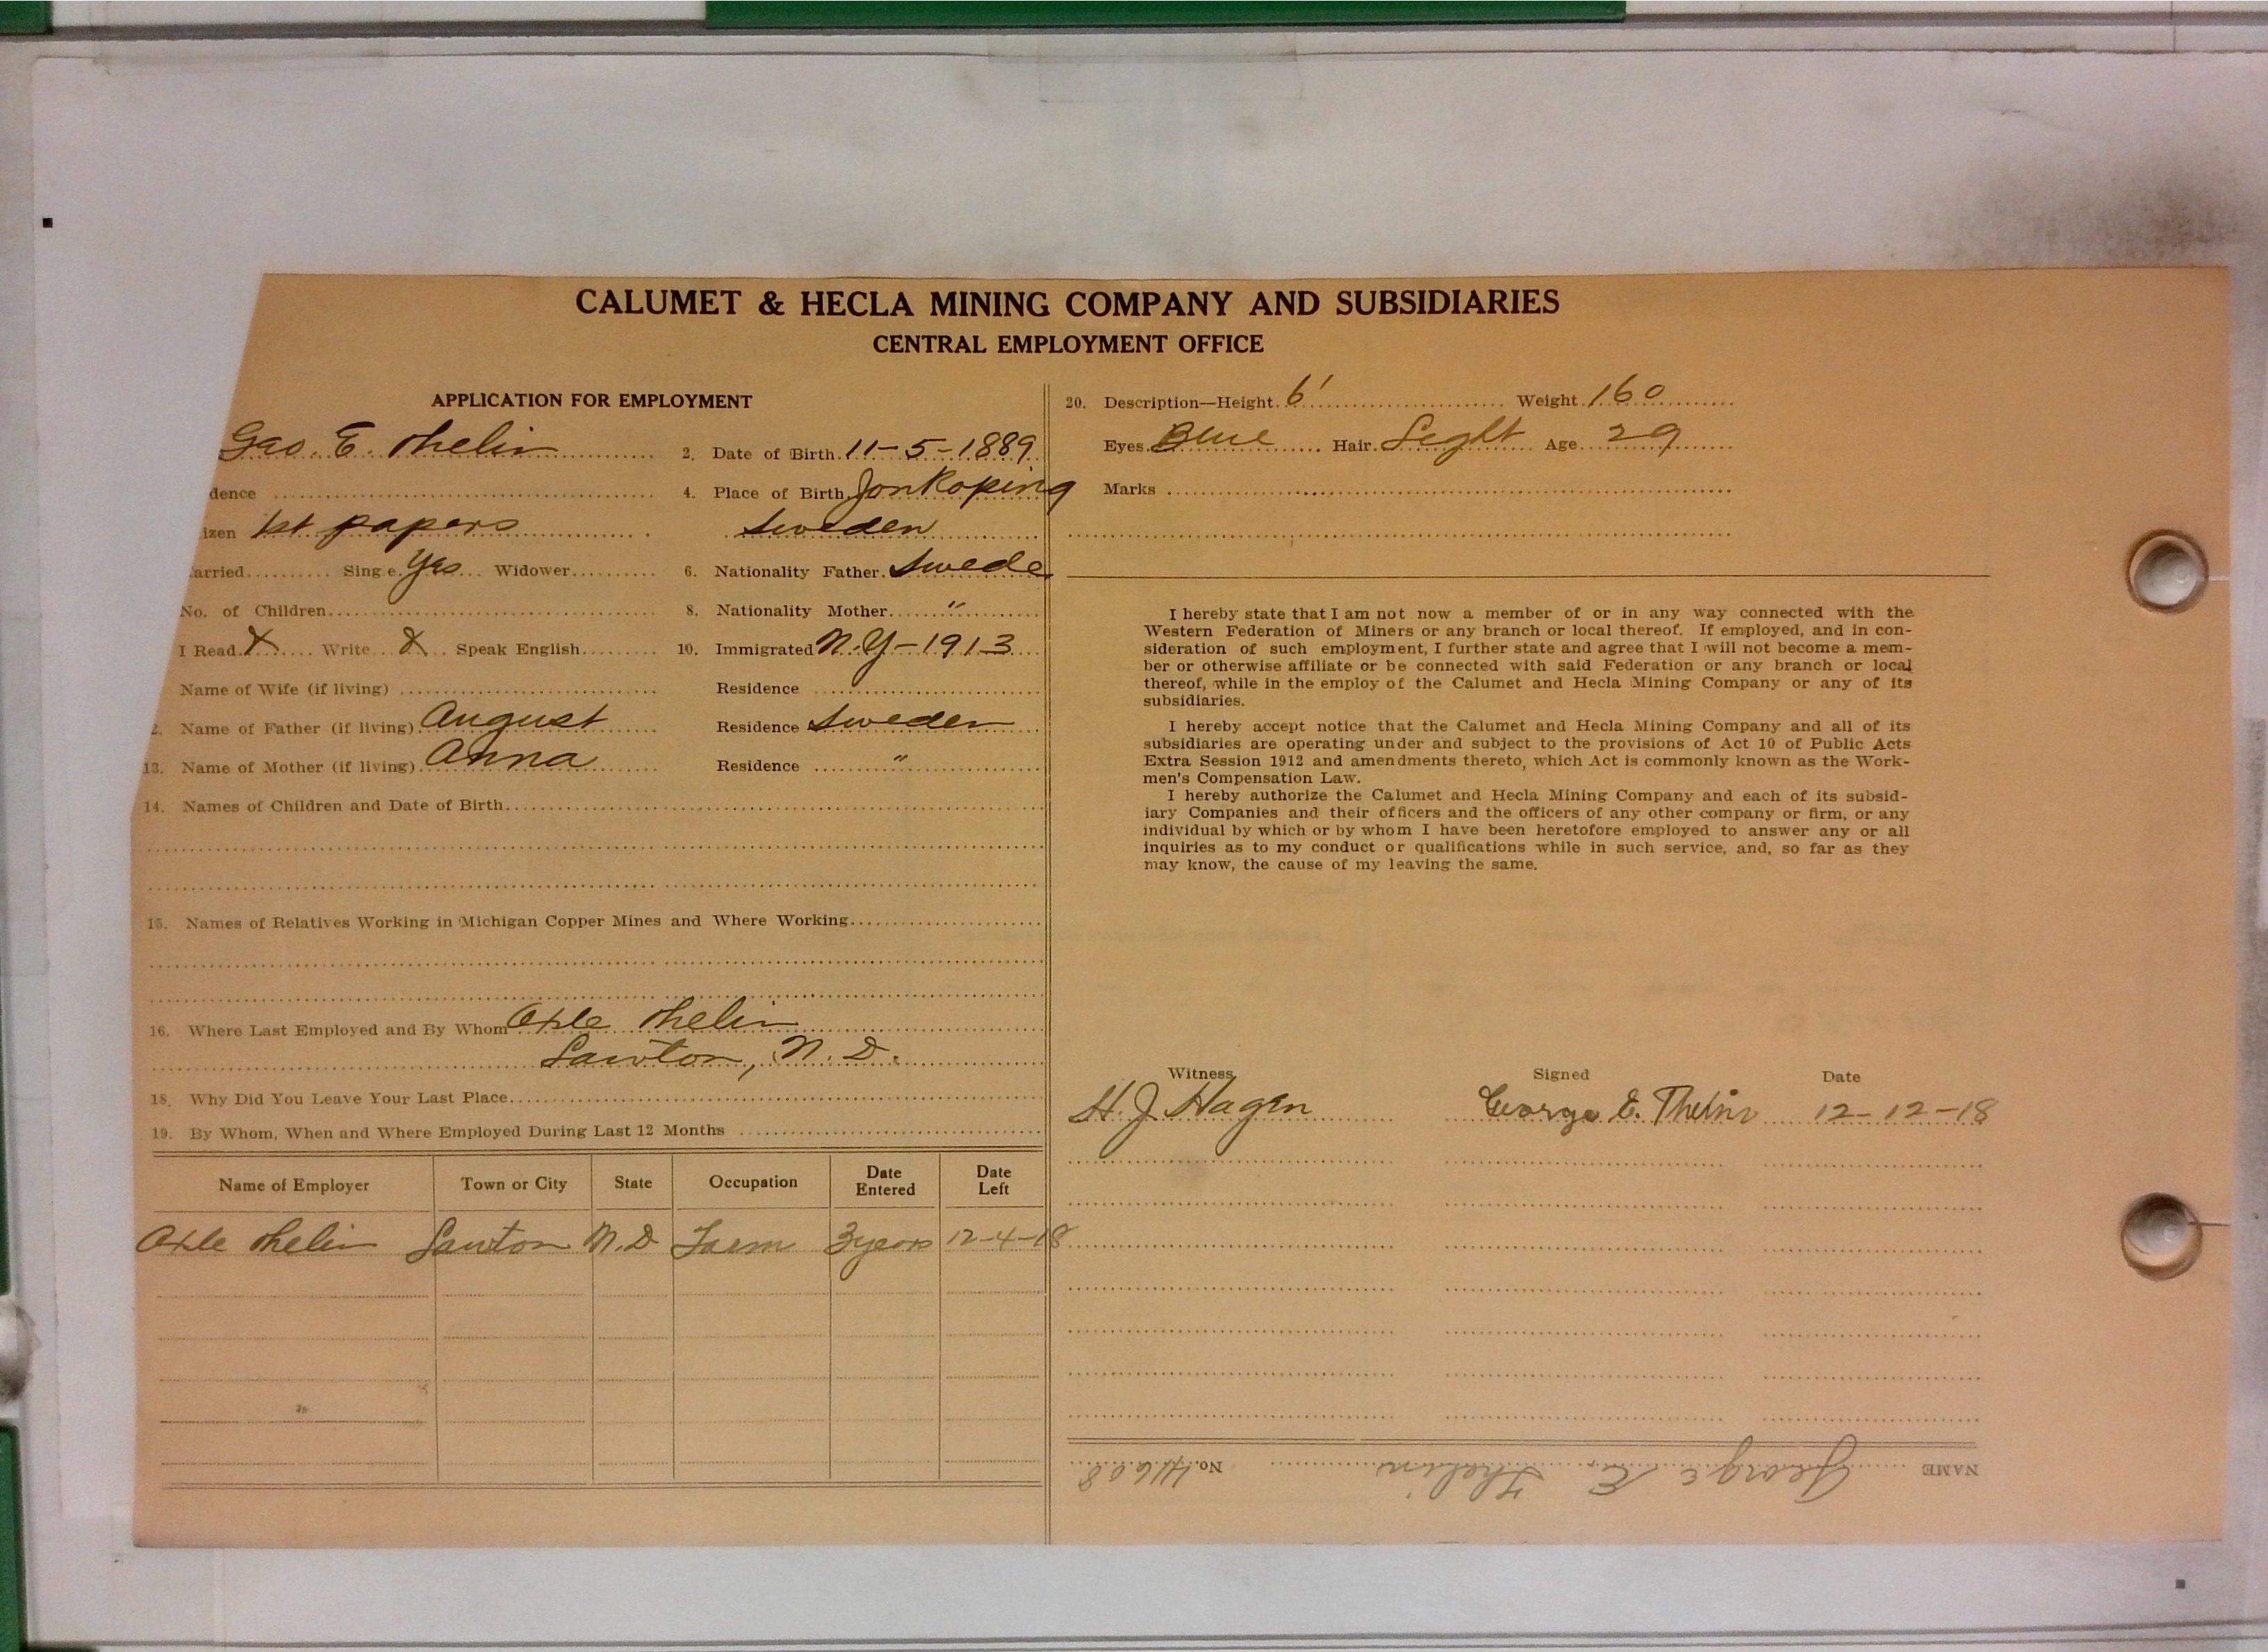 CALUMET & HECLA MINING COMPANY AND SUBSIDIARIES
CENTRAL EMPLOYMENT OFFICE
APPLICATION FOR EMPLOYMENT
Geo. E. Thelin
2. Date of Birth 11-5-1889
dence
4. Place of Birth Jonkoping
izen 1st papers
Sweden
arried Sing e. Yes Widower
6. Nationality Father Swede
No. of Children
8. Nationality Mother "
I Read X Write X Speak English
10. Immigrated N.Y-1913
Name of Wife (if living)
Residence
2. Name of Father (if living) August
Residence Sweden
13. Name of Mother (if living) Anna
Residence "
14. Names of Children and Date of Birth
15. Names of Relatives Working in Michigan Copper Mines and Where Working
16. Where Last Employed and By Whom Axle Thelin
Lawton, N. D.
18. Why Did You Leave Your Last Place
19. By Whom, When and Where Employed During Last 12 Months
Name of Employer Town or City State Occupation Date Entered Date Left
Axle Thelin Lawton N.D Farm 3 years 12-4-18
20. Description—Height 6' Weight 160
Eyes Blue Hair Light Age 29
Marks
I hereby state that I am not now a member of or in any way connected with the
Western Federation of Miners or any branch or local thereof. If employed, and in con-
sideration of such employment, I further state and agree that I will not become a mem-
ber or otherwise affiliate or be connected with said Federation or any branch or local
thereof, while in the employ of the Calumet and Hecla Mining Company or any of its
subsidiaries.
I hereby accept notice that the Calumet and Hecla Mining Company and all of its
subsidiaries are operating under and subject to the provisions of Act 10 of Public Acts
Extra Session 1912 and amendments thereto, which Act is commonly known as the Work-
men's Compensation Law.
I hereby authorize the Calumet and Hecla Mining Company and each of its subsid-
iary Companies and their officers and the officers of any other company or firm, or any
individual by which or by whom I have been heretofore employed to answer any or all
inquiries as to my conduct or qualifications while in such service, and, so far as they
may know, the cause of my leaving the same.
Witness Signed Date
H. J. Hagen George E. Thelin 12-12-18
NAME George E. Thelin No. 41608